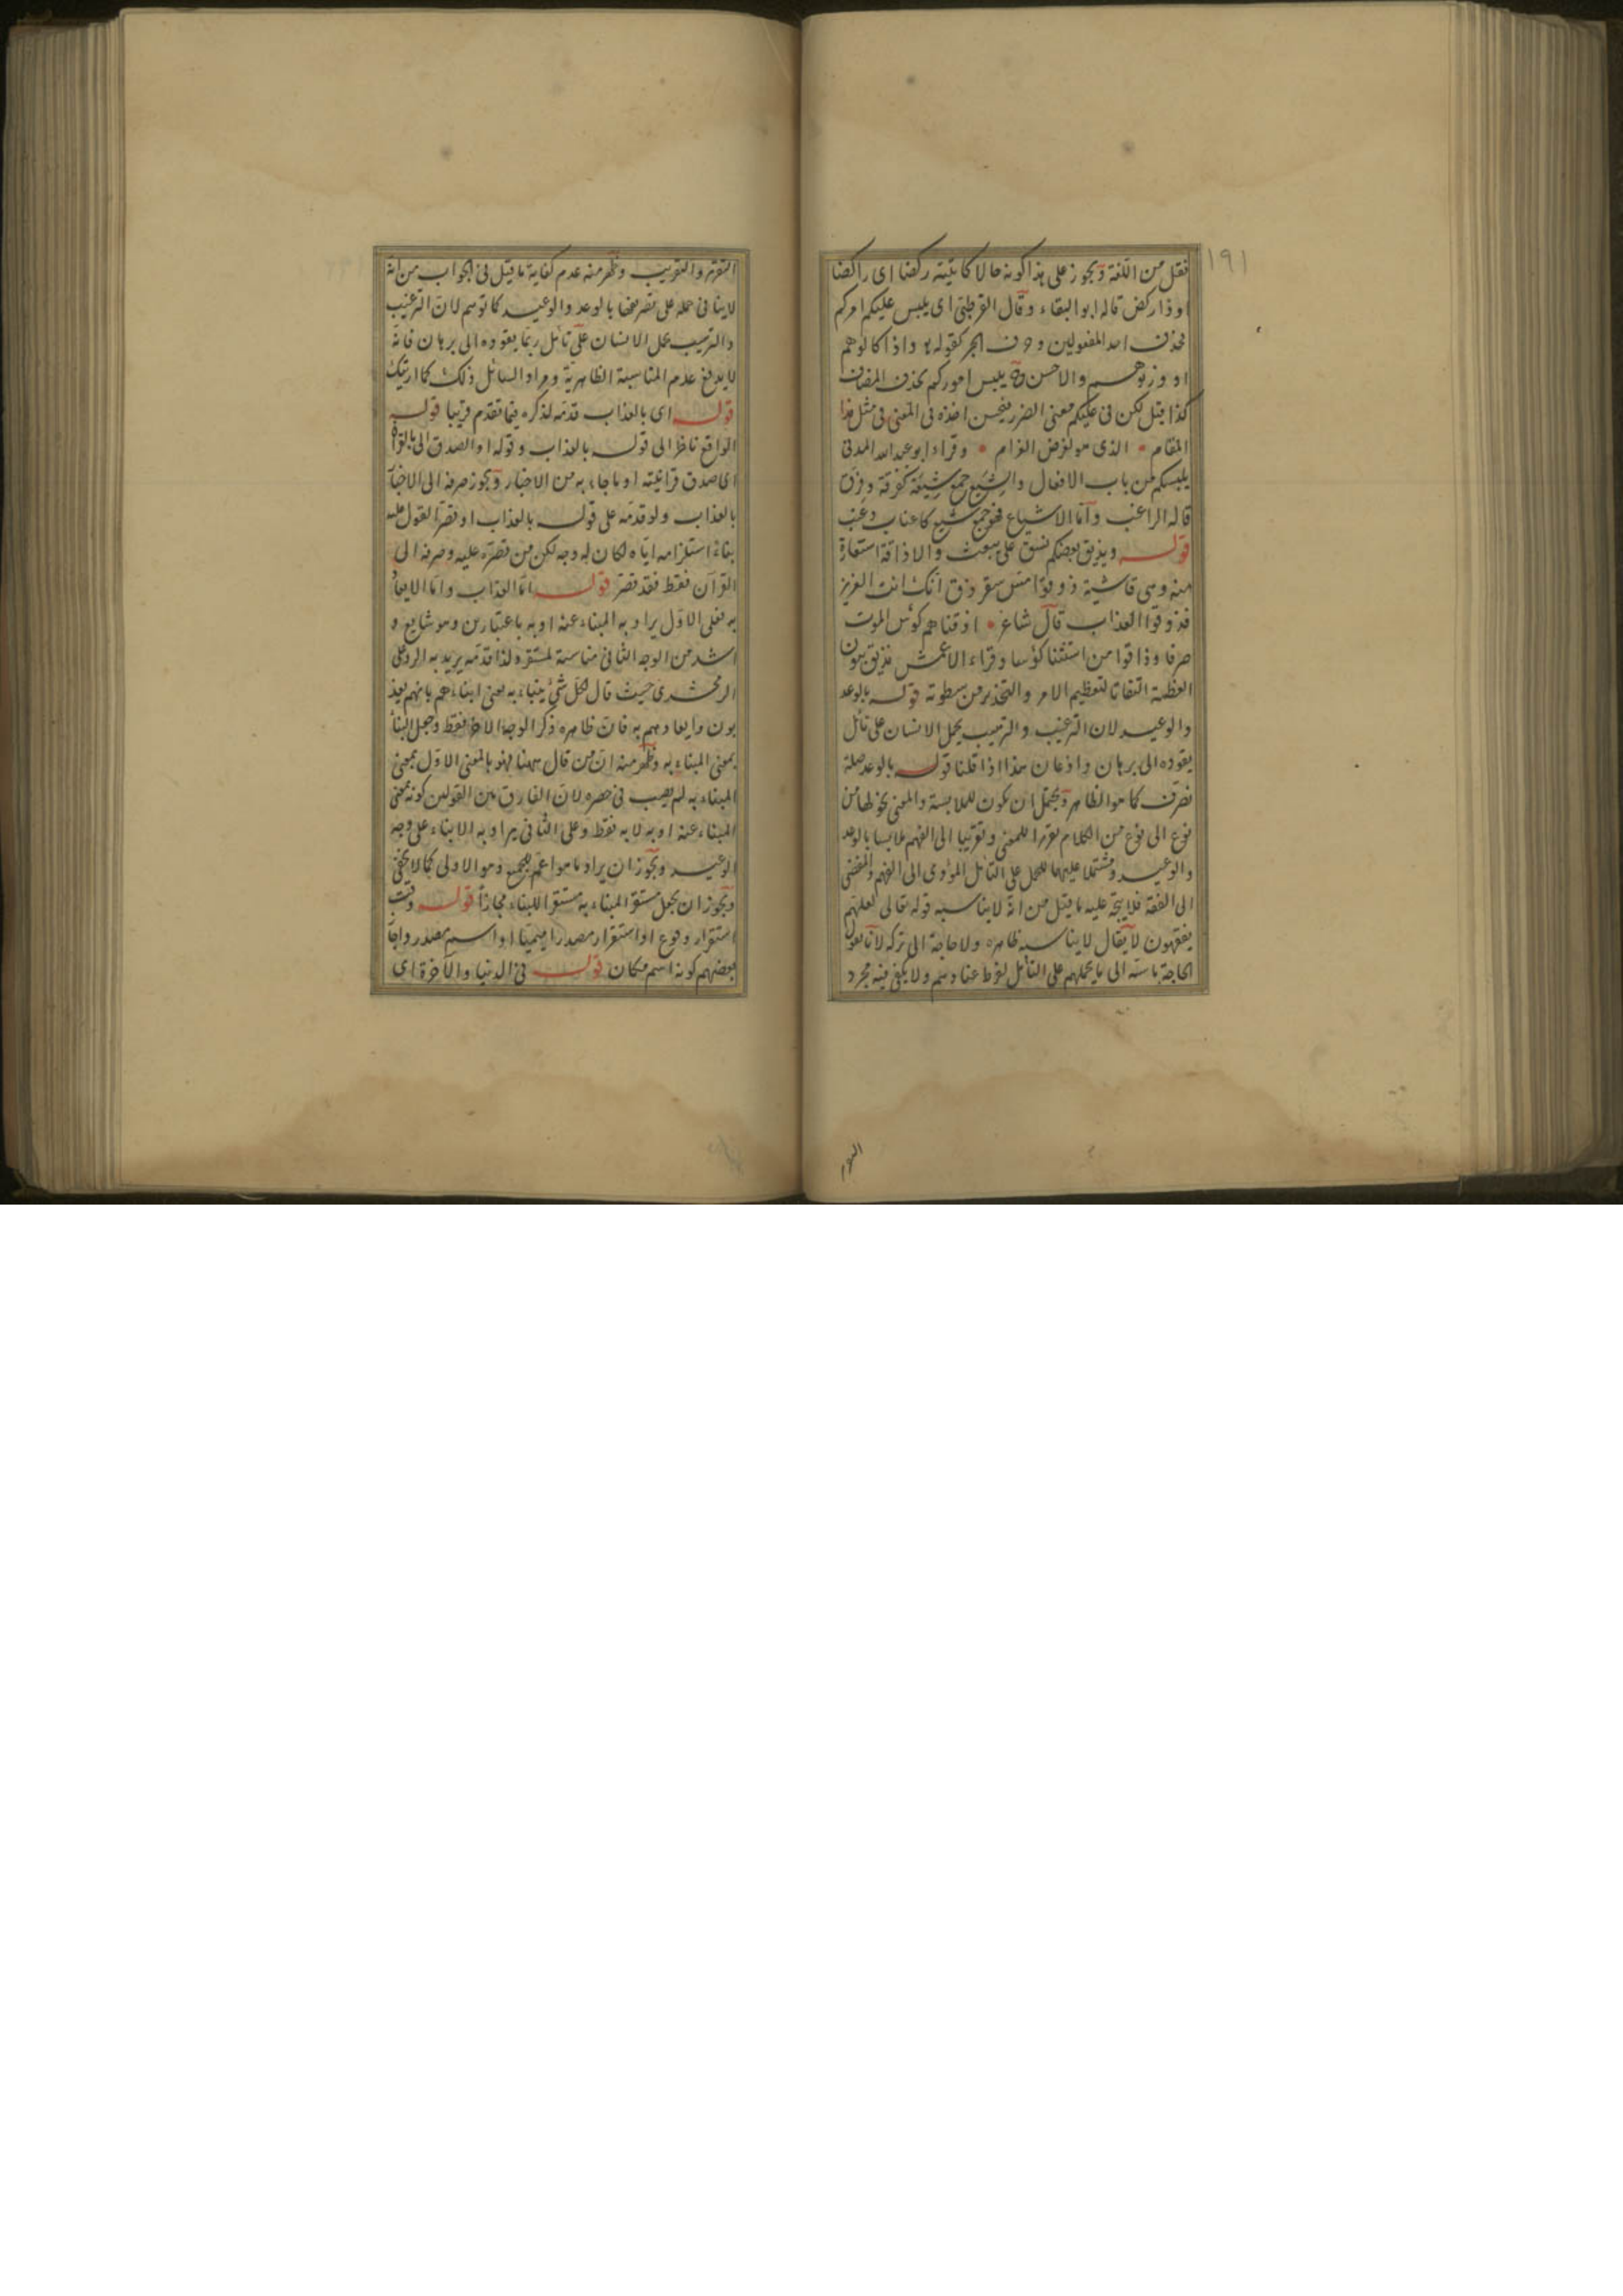 ١٩١
فقل من اللغة ويجوز على هذا كونه حالا كاتيته ركضا اى راكضا
او ذا ركض قاله ابو البقاء وقال القرطبى اى يلبس عليكم امركم
فحذف احد المفعولين وحرف الجر كقوله واذا كالوهم
او وزنوهم والاحسن يلبس اموركم بحذف المضاف
كذا قيل لكن فى عليكم معنى الضرر فيحسن اخذه فى المعنى فى مثل هذا
المقام الذى هو لغرض الغرام وقراء ابو عبد الله المدنى
يلبسكم من باب الافعال والشيع جمع شيعة كفرقة وفرق
قاله الراغب وامّا الاشياع فهو جمع شيع كاعناب وعنب
قوله ويذيق بعضكم نسق على يبعث والاذاقة استعارة
منه وهى فاشية ذوقوا مس سقر ذق انك انت العزيز
فذوقوا العذاب قال شاعر اذقناهم كؤس الموت
صرفا وذاقوا من استّنا كؤسا وقراء الاعمش نذيق بنون
العظمة التفاتا لتعظيم الامر والتحذير من سطوته قوله بالوعد
والوعيد لان الترغيب والترهيب يحمل الانسان على تأمّل
يقوده الى برهان واذعان هذا اذا قلنا قوله بالوعد صلة
نصرف كما هو الظاهر ويحتمل ان يكون للملابسة والمعنى نحوّلها من
نوع الى نوع من الكلام تقريرا للمعنى وتقريبا الى الفهم ملابسا بالوعد
والوعيد ومشتملا عليهما للحمل على التأمّل المؤدى الى الفهم والمفضى
الى الفقه فلا يتجه عليه ما قيل من انه لا يناسبه قوله تعالى لعلهم
يفقهون لا يقال لا يناسبه ظاهره ولا حاجة الى تركه لانا نقول
الحاجة ماسّة الى ما يحملهم على التأمّل لفرط عنادهم ولا يكفى فيه مجرد
التقرير والتقريب وظهر منه عدم كفاية ما قيل فى الجواب من انه
لا ينافى حمله على تصريفها بالوعد والوعيد كما توهم لان الترغيب
والترهيب يحمل الانسان على تأمّل ربما يقوده الى برهان فانه
لا يدفع عدم المناسبة الظاهرية ومراد السائل ذلك كما اريتك
قوله اى بالعذاب قدمه لذكره فيما تقدم قريبا قوله
الواقع ناظرا الى قوله بالعذاب وقوله او الصدق الى بالقرآن
اى صدق قرآنيته او ما جاء به من الاخبار ويجوز صرفه الى الاخبار
بالعذاب ولو قدمه على قوله بالعذاب او قصر القول عليه
بناء استلزامه اياه لكان له وجه لكن من قصره عليه وصرفه الى
القرآن فقط فقد قصر قوله امّا العذاب وامّا الايعاد
به فعلى الاول يراد به المنباء عنه او به باعتبارين وهو شايع و
اشد من الوجه الثانى مناسبة لمستقر ولذا قدمه يريد به الرد على
الزمخشرى حيث قال لكل شئ ينباء به يعنى انباءهم بانهم يعذ
بون وايعادهم به فان ظاهره ذكر الوجه الاخر فقط وجعل النبأ
بمعنى المنباء به وظهر منه ان من قال ههنا فهو بالمعنى الاول بمعنى
المنباء به لم يصب فى حصره لان الفارق بين القولين كونه بمعنى
المنباء عنه او به لا به فقط وعلى الثانى يراد به الانباء على وجه
الوعيد ويجوز ان يراد ما هو اعم للجمع وهو الاولى كما لا يخفى
ويجوز ان يجعل مستقر المنباء به مستقرا للنباء مجازا قوله وقت
استقرار وقوع او استقرار مصدرا ميميا او اسم مصدر واجاز
بعضهم كونه اسم مكان قوله فى الدنيا والآخرة اى